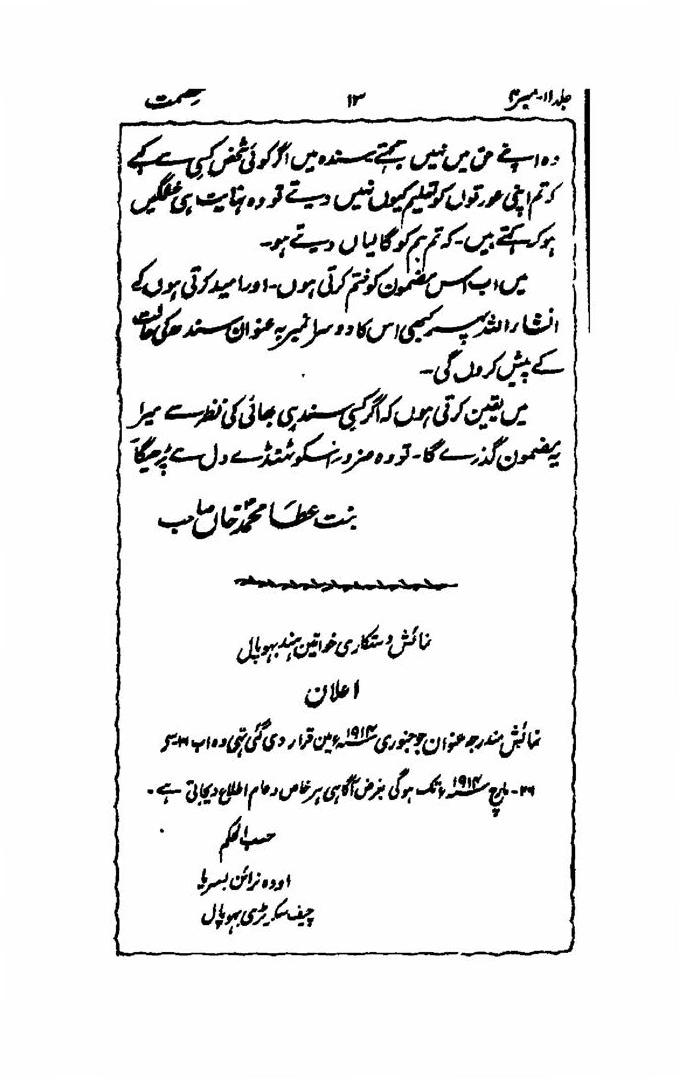 جلد ۱۱۔ نمبر ۴
۱۳
عصمت
وہ اپنے حق میں نہیں سمجھتے سندہ میں اگر کوئی شخص کسی سے کہے
کہ تم اپنی عورتوں کو تعلیم کیوں نہیں دیتے تو وہ نہایت ہی غمگین
ہو کر کہتے ہیں۔ کہ تم ہم کو گالیاں دیتے ہو۔
میں اب اس مضمون کو ختم کرتی ہوں۔ اور امید کرتی ہوں کے
انشاء اللہ پہر کبھی اس کا دوسرا نمبر بہ عنوان سندھ کی حالت
کے پیش کروں گی۔
میں یقین کرتی ہوں کہ اگر کسی سندہی بھائی کی نظر سے میرا
یہ مضمون گذرے گا۔ تو وہ ضرور اسکو ٹھنڈے دل سے پڑہیگا
بنت عطا محمد خاں صاحب
نمائش دستکاری خواتین ہند بہوپال
اعلان
نمائش مندرجہ عنوان جو جنوری سنہ ۱۹۱۴ء میں قرار دی گئی تہی وہ اب سے
۲۶۔ مارچ سنہ ۱۹۱۴ء تک ہوگی بغرض آگاہی ہر خاص و عام اطلاع دیجاتی ہے۔
حسب الحکم
اودہ نرائن بسریا
چیف سکریٹری بہوپال